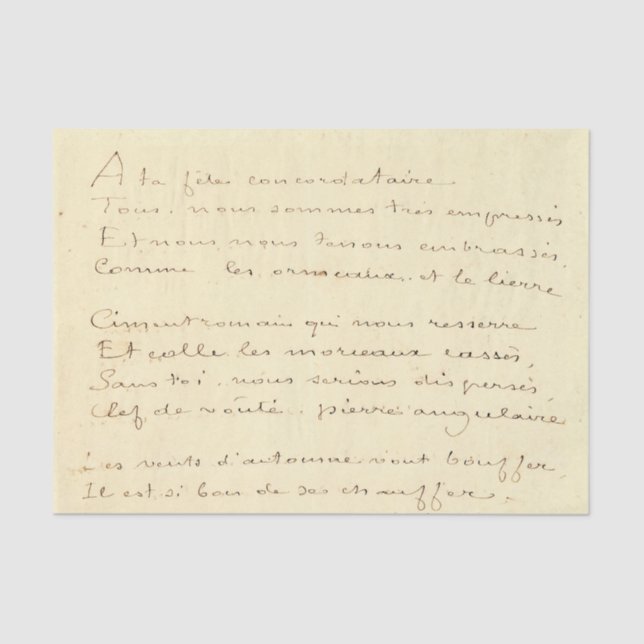 A ta fête concordataire
Tous, nous sommes très empressés
Et nous nous tenons embrassés,
Comme les ormeaux, et le lierre
Ciment romain qui nous resserre
Et colle les morceaux cassés,
Sans toi, nous serions dispersés,
Clef de voûte, pierre angulaire
Les vents d'automne vont bouffer,
Il est si bon de se chauffer.